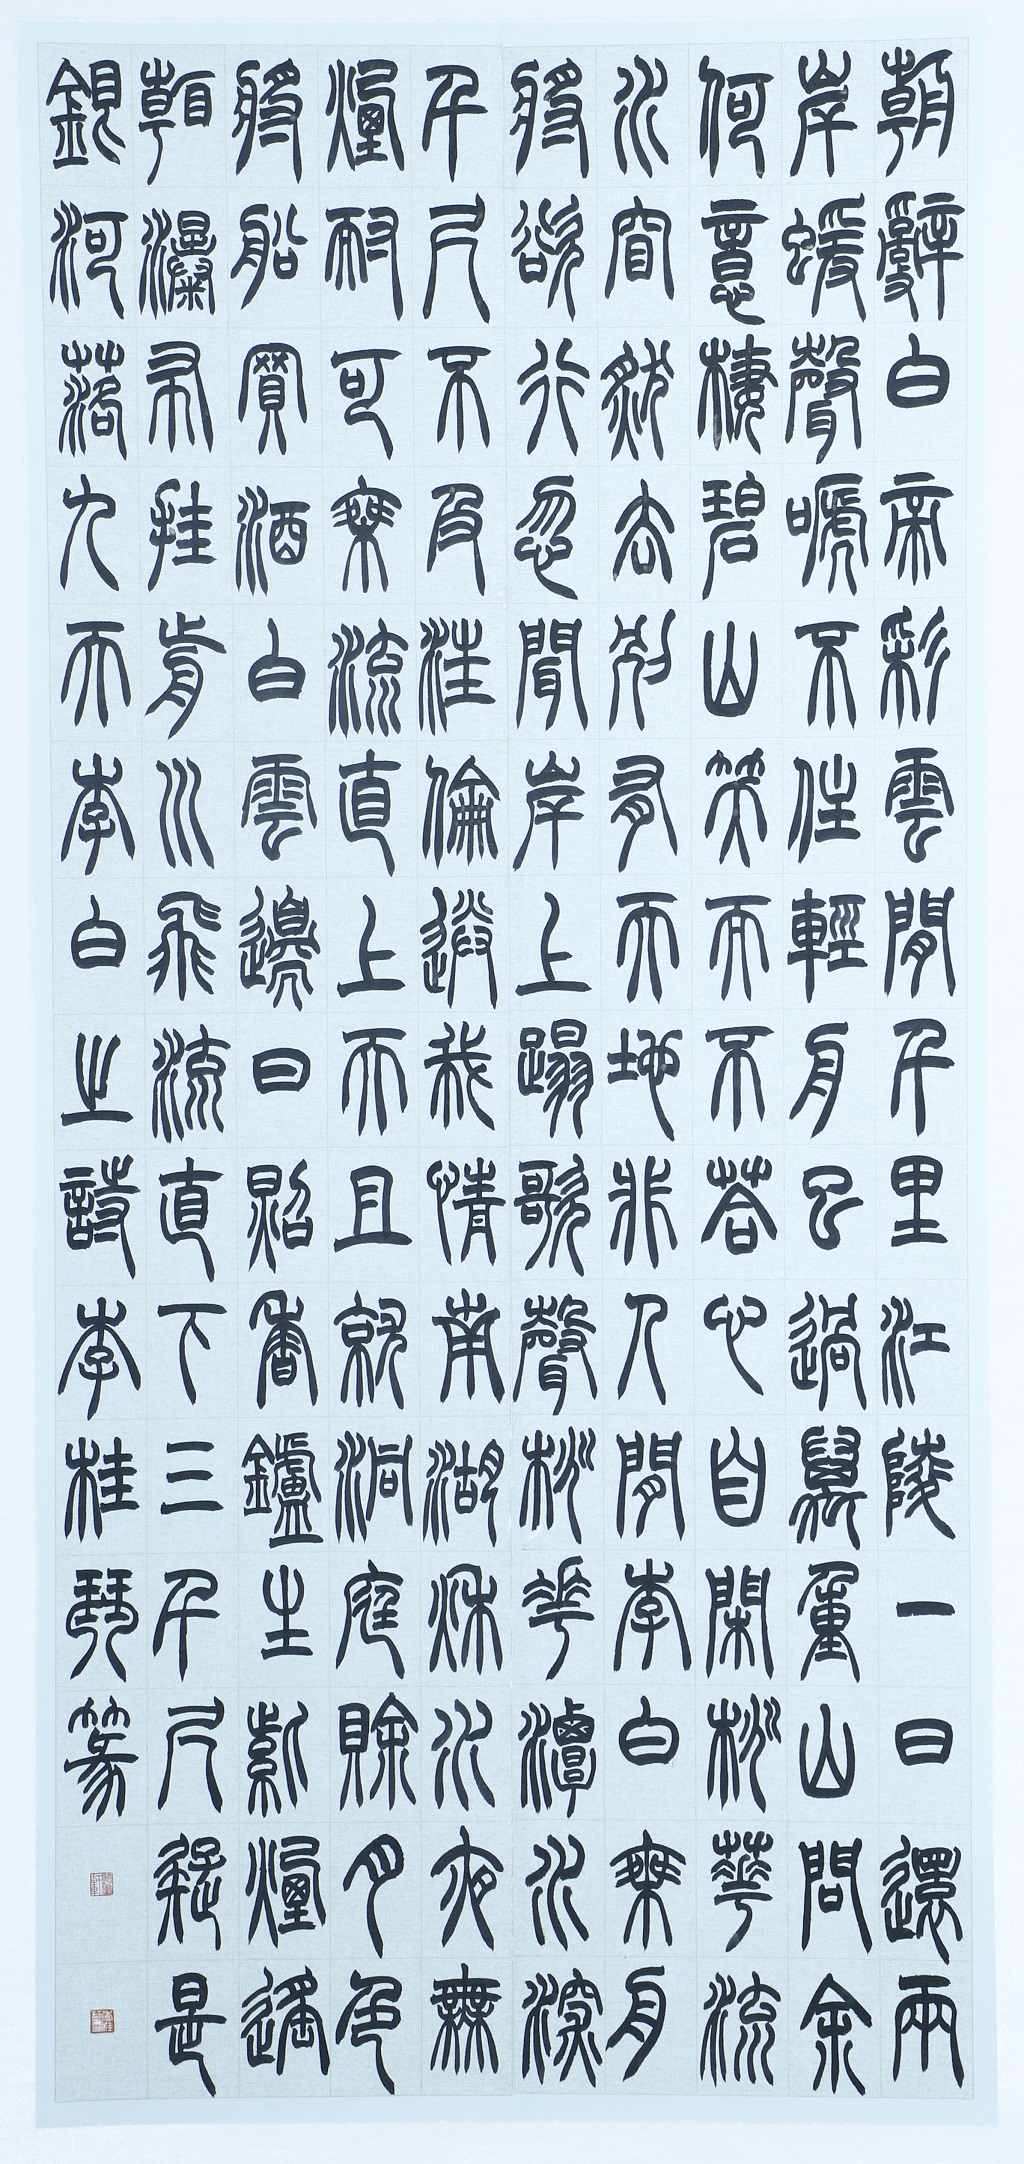 朝辭白帝彩雲間千里江陵一日還兩
岸蝯聲嗁不住輕舟已過萬重山問余
何意棲碧山笑而不答心自閑桃華流
水窅然去別有天地非人間李白乘舟
將欲行忽聞岸上蹋歌聲桃花潭水深
千尺不及汪倫送我情南湖秋水夜無
煙耐可乘流直上天且就洞庭賒月色
將船買酒白雲邊日照香鑪生紫煙遙
看瀑布挂前川飛流直下三千尺疑是
銀河落九天李白之詩李桂琴篆